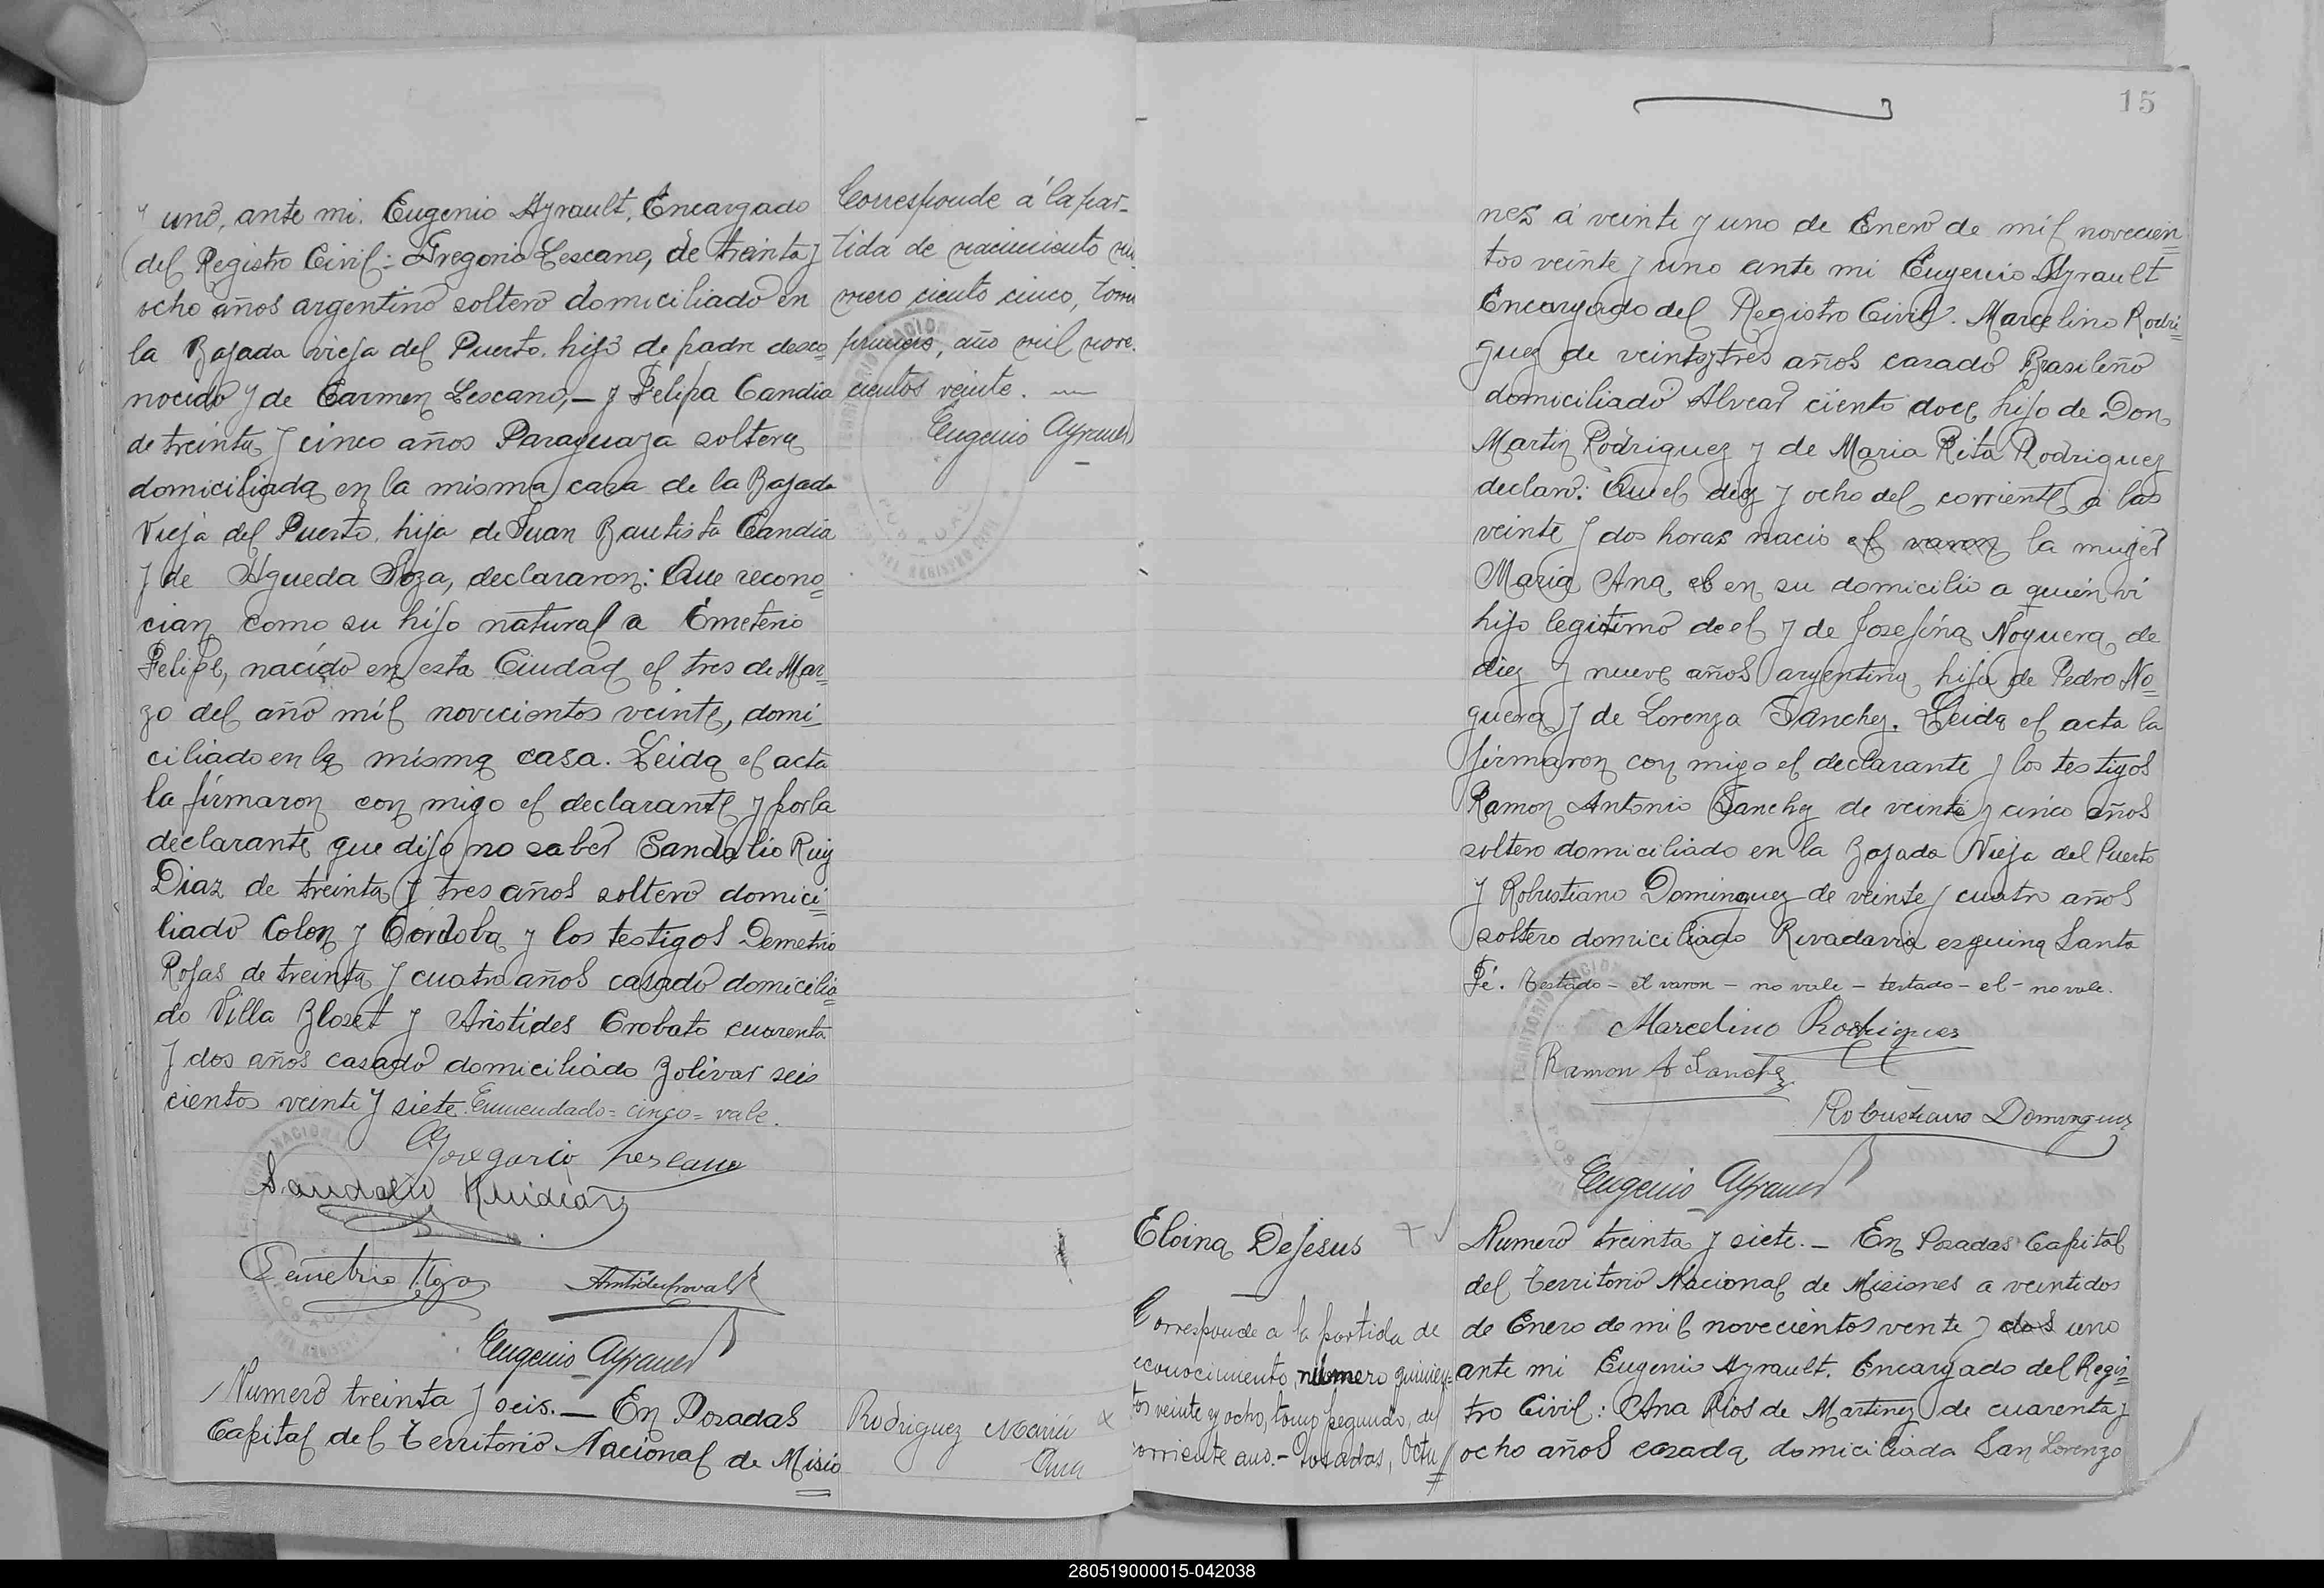 y uno, ante mi. Eugenio Ayrault, Encargado
del Registro Civil: Gregorio Lescano, de treinta y
ocho años argentino soltero domiciliado en
la Bajada vieja del Puerto. hijo de padre desco
nocido y de Carmen Lescano,— y Felipa Candia
de treinta y cinco años Paraguaya soltera
domiciliada en la misma casa de la Bajada
Vieja del Puerto, hija de Juan Bautista Candia
y de Agueda Soza, declararon: Que recono=
cian como su hijo natural a Emeterio
Felipe, nacido en esta Ciudad el tres de Mar=
zo del año mil novecientos veinte, domi=
ciliado en la misma casa. Leida el acta
la firmaron con migo el declarante y por la
declarante que dijo no saber Sandalio Ruiz
Diaz de treinta y tres años soltero domici=
liado Colon y Cordoba y los testigos Demetrio
Rojas de treinta y cuatro años casado domicilia=
do Villa Bloset y Aristides Crobato cuarenta
y dos años casado domiciliado Bolivar seis
cientos veinte y siete. Enmendado = cinco = vale.
Goregorio Lescano
Sandalio Ruidiaz
Demetrio Rojas
Eugenio Ayrault
Numero treinta y seis. — En Posadas
Capital del Territorio Nacional de Misio=
Corresponde á la par-
tida de nacimiento nu
mero ciento cinco, tomo
primero, año mil nove.
cientos veinte. —
Eugenio Ayrault
Rodriguez Maria
Ana
15
nes a veinte y uno de Enero de mil novecien=
tos veinte y uno ante mi Eugenio Ayrault
Encargado del Registro Civil. Marcelino Rodri=
guez de veinte y tres años casado Brasileño
domiciliado Alvear ciento doce, hijo de Don
Martin Rodriguez y de Maria Rita Rodriguez
declaró: Que el diez y ocho del corriente a las
veinte y dos horas nació el varon la mujer
Maria Ana el en su domicilio a quien vi
hijo legitimo de el y de Josefina Noguera, de
diez y nueve años argentina, hija de Pedro No=
guera y de Lorenza Sanchez. Leida el acta la
firmaron con migo el declarante y los testigos
Ramon Antonio Sanchez de veinte y cinco años
soltero domiciliado en la Bajada Vieja del Puerto
y Robustiano Dominguez de veinte y cuatro años
soltero domiciliado Rivadavia esquina Santa
Fé. Testado - el varon - no vale - testado - el - no vale.
Marcelino Rodriguez
Ramon A Sanchez
Robustiano Dominguez
Eugenio Ayrault
Eloina DeJesus
Corresponde a la partida de
econocimiento, número quinien=
tos veinte y ocho, tomo segundo, del
orriente año. - Posadas, Octu
Numero treinta y siete. — En Posadas Capital
del Territorio Nacional de Misiones a veintidos
de Enero de mil novecientos vente y dos uno
ante mi Eugenio Ayrault. Encargado del Regis=
tro Civil: Ana Rios de Martinez de cuarenta y
ocho años casada, domiciliada San Lorenzo
280519000015-042038